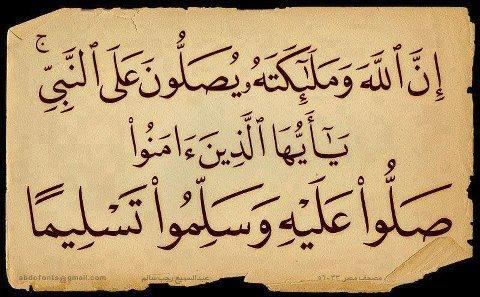 إِنَّ ٱللَّهَ وَمَلَٰٓئِكَتَهُۥ يُصَلُّونَ عَلَى ٱلنَّبِىِّۚ
يَٰٓأَيُّهَا ٱلَّذِينَ ءَامَنُوا۟
صَلُّوا۟ عَلَيْهِ وَسَلِّمُوا۟ تَسْلِيمًا
مصحف مصر ٣٣-٥٦ عبدالسميع رجب سالم abdofonts@gmail.com